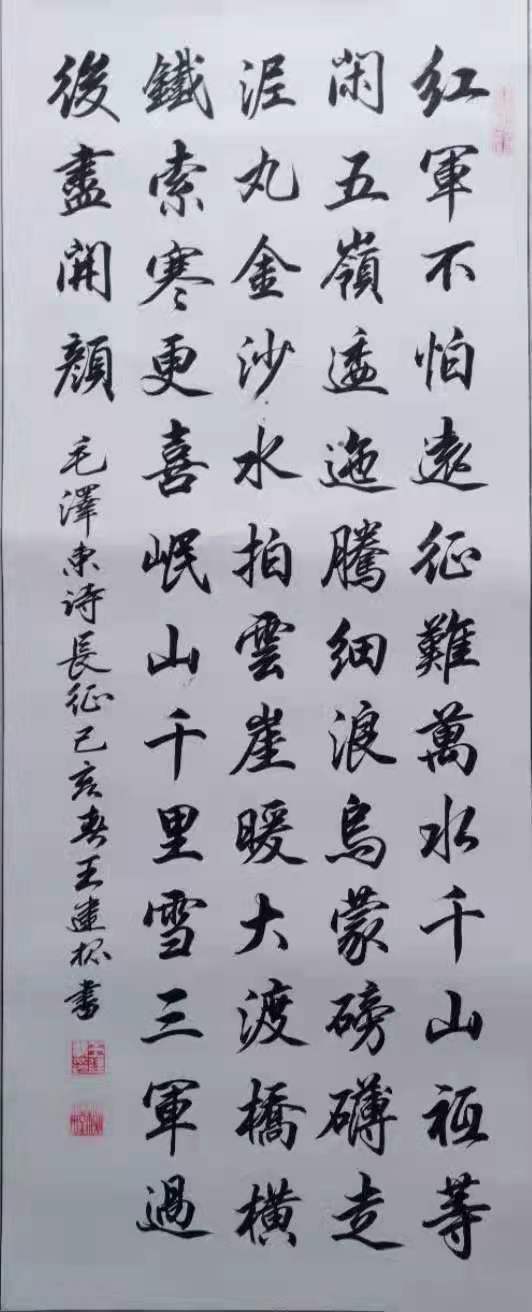 紅軍不怕遠征難萬水千山祗等
閑五嶺逶迤騰細浪烏蒙磅礴走
泥丸金沙水拍雲崖暖大渡橋橫
鐵索寒更喜岷山千里雪三軍過
後盡開顏
毛澤東诗長征己亥春王建書